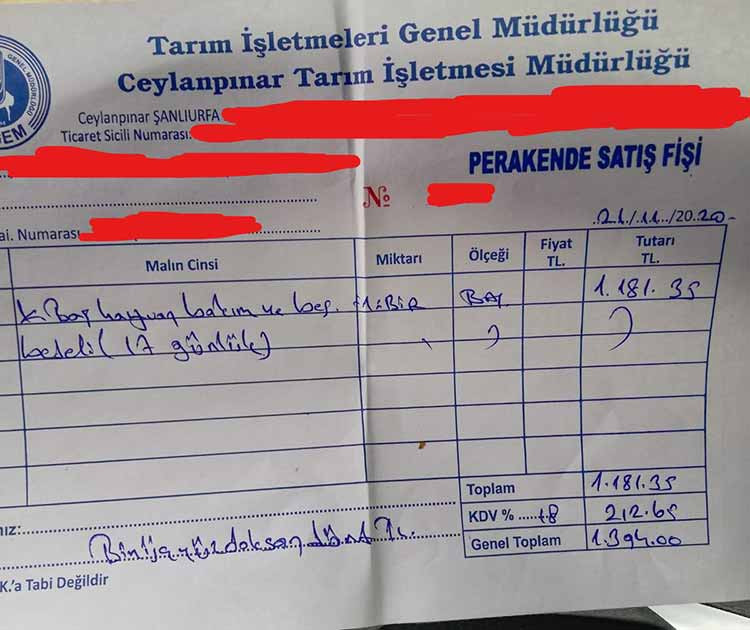 Tarım İşletmeleri Genel Müdürlüğü
Ceylanpınar Tarım İşletmesi Müdürlüğü
GENEL MÜDÜRLÜĞÜ
GEM
Ceylanpınar ŞANLIURFA
Ticaret Sicili Numarası:
PERAKENDE SATIŞ FİŞİ
№
ai. Numarası
21/11/2020-
Malın Cinsi Miktarı Ölçeği Fiyat TL. Tutarı TL.
K. Baş hayvan bakım ve bes. 1:BİR BAŞ 1.181.35
bedeli (17 günlük)
Toplam 1.181.35
KDV % 18 212.65
Genel Toplam 1.394.00
nız:
Binüçyüzdoksandört TL.
K.'a Tabi Değildir